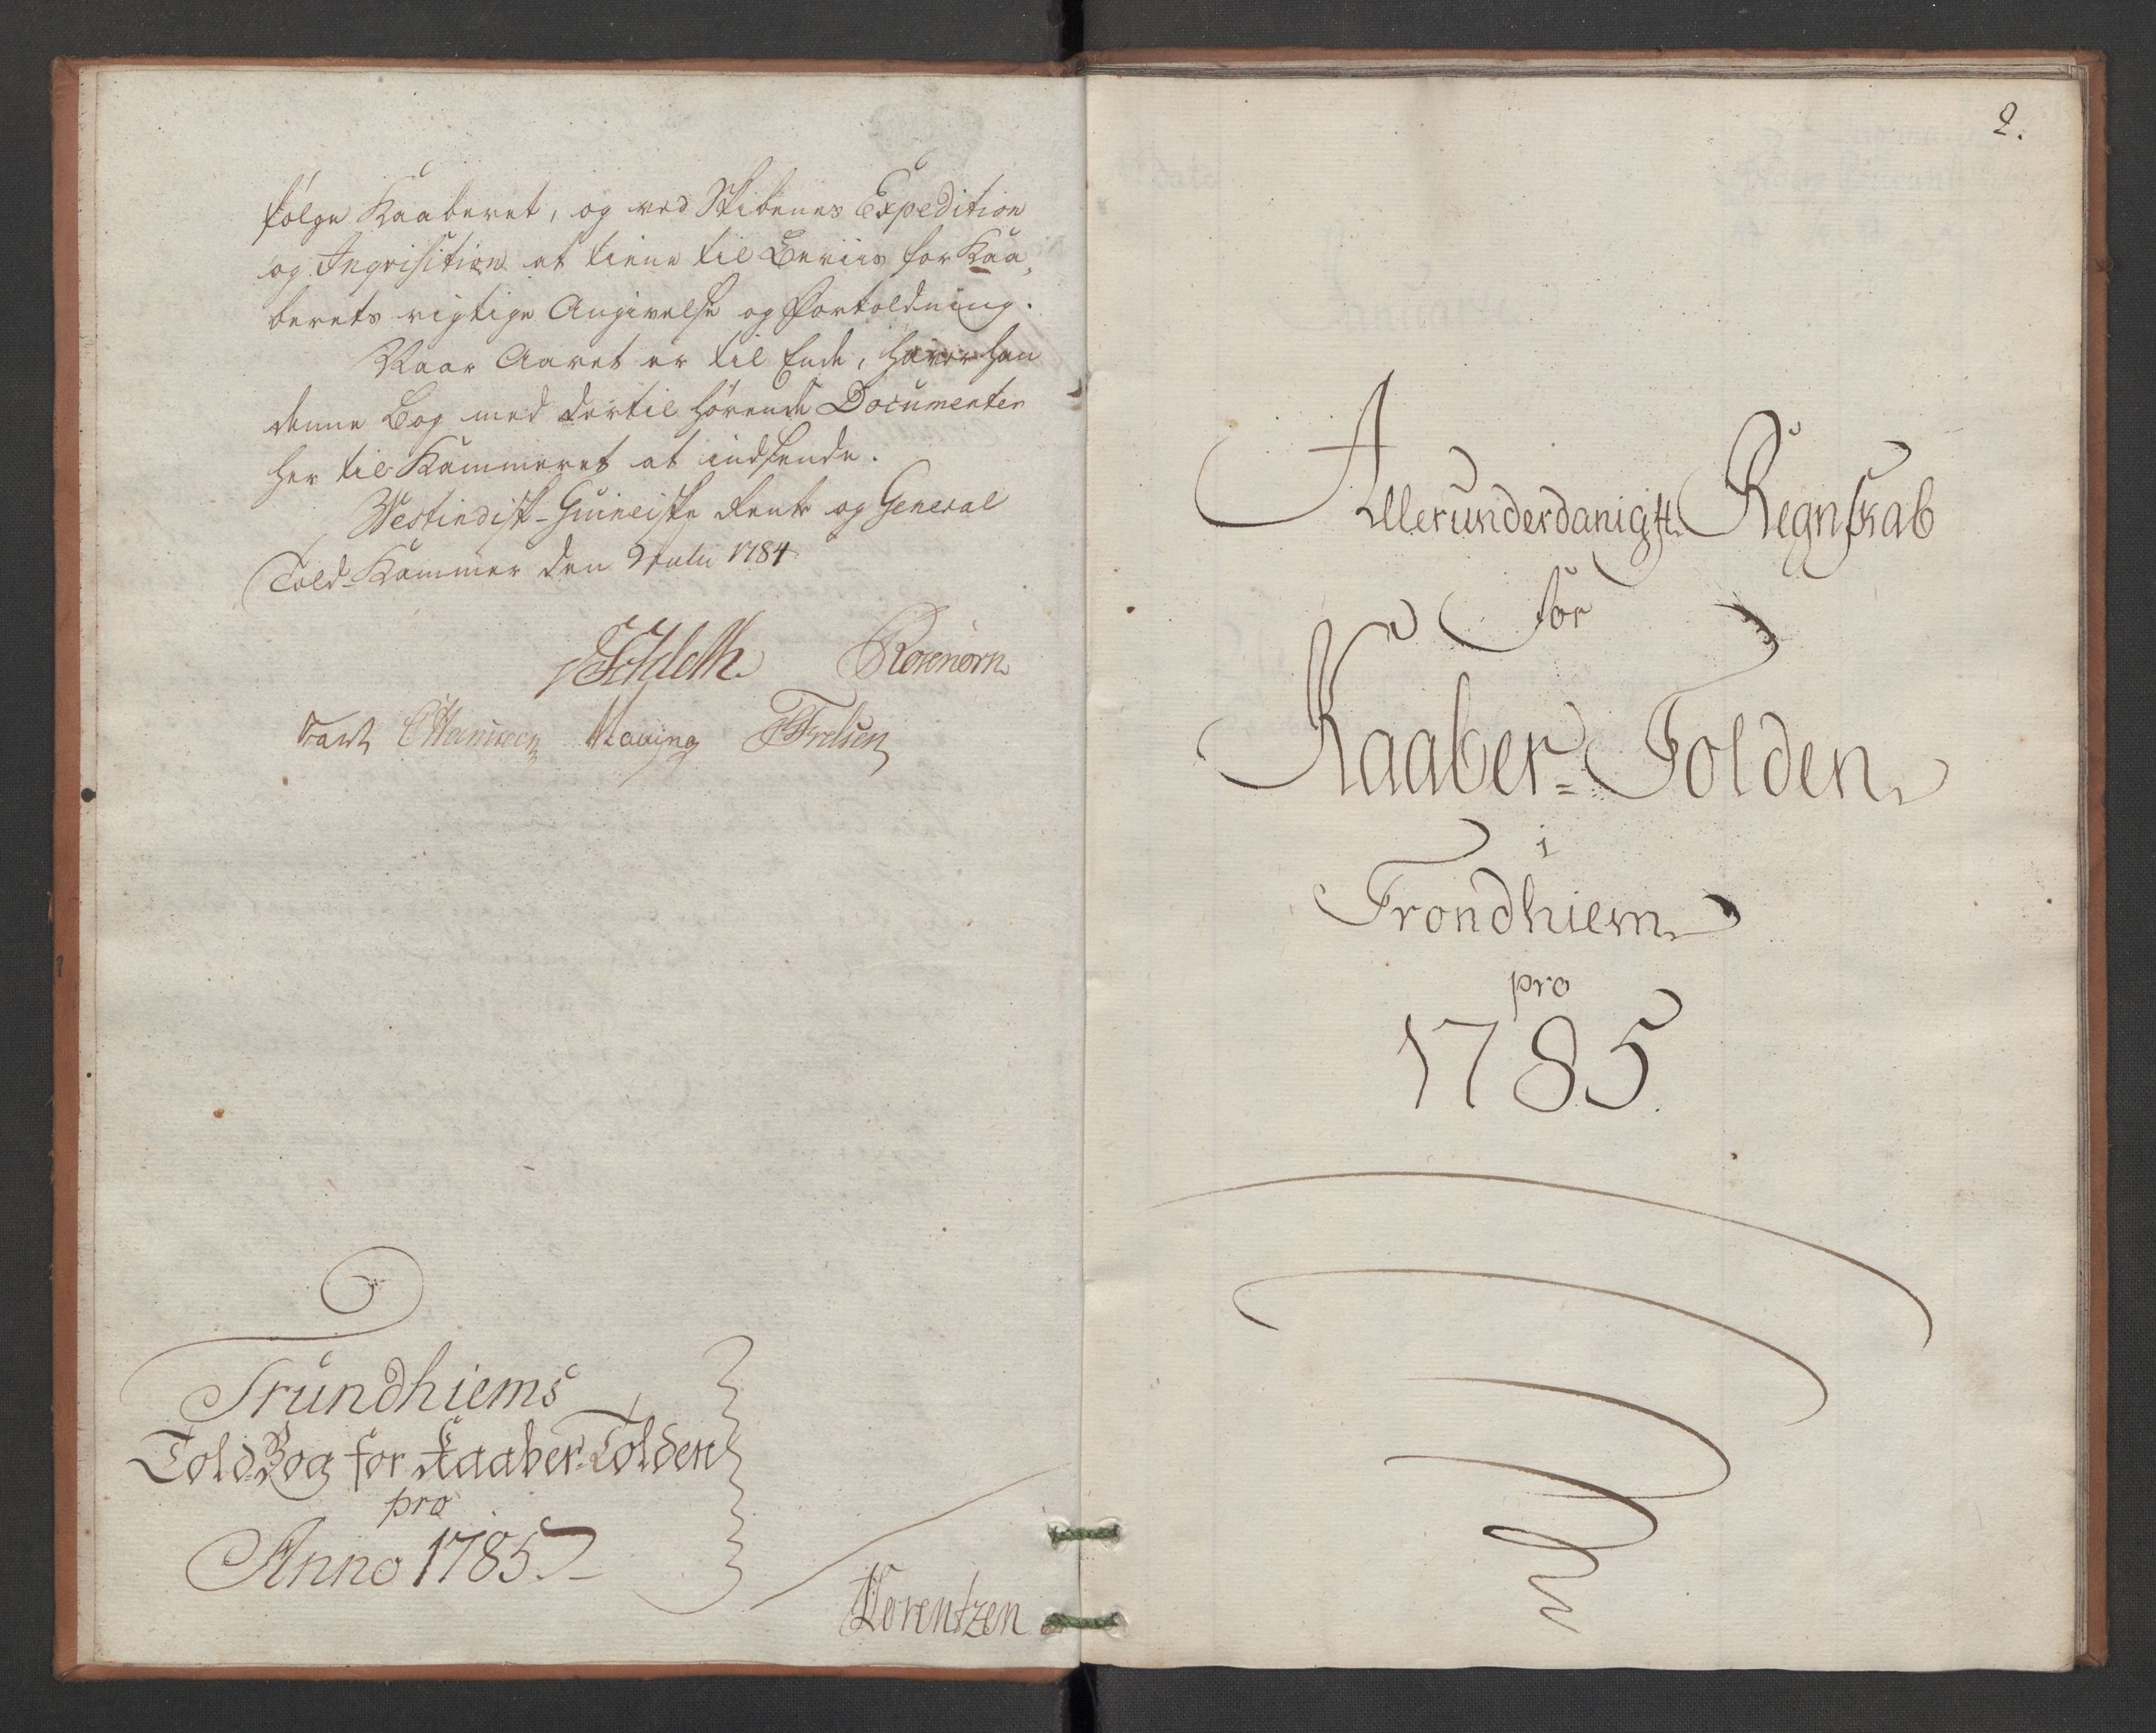 følge Kaaberet, og ved Skibenes Expedition
og Inqvisition at tiene til Beviis for Kaa„
berets rigtige Angivelse og Fortoldning.
Naar Aaret er til Ende, haver han
denne Bog med dertil hørende Documenter
her til Kammeret at indsende.
Westindisk-Guineiske Rente og General
Told-Kammer den 9 Julii 1784
Rosenørn
Trundhiems
Told-Bog for Kaaber-Tolden
pro
Anno 1785.
Lorentzen
2.
Allerunderdanigst Regnskab
for
Kaaber=Tolden
i
Trondhiem
pro
1785.